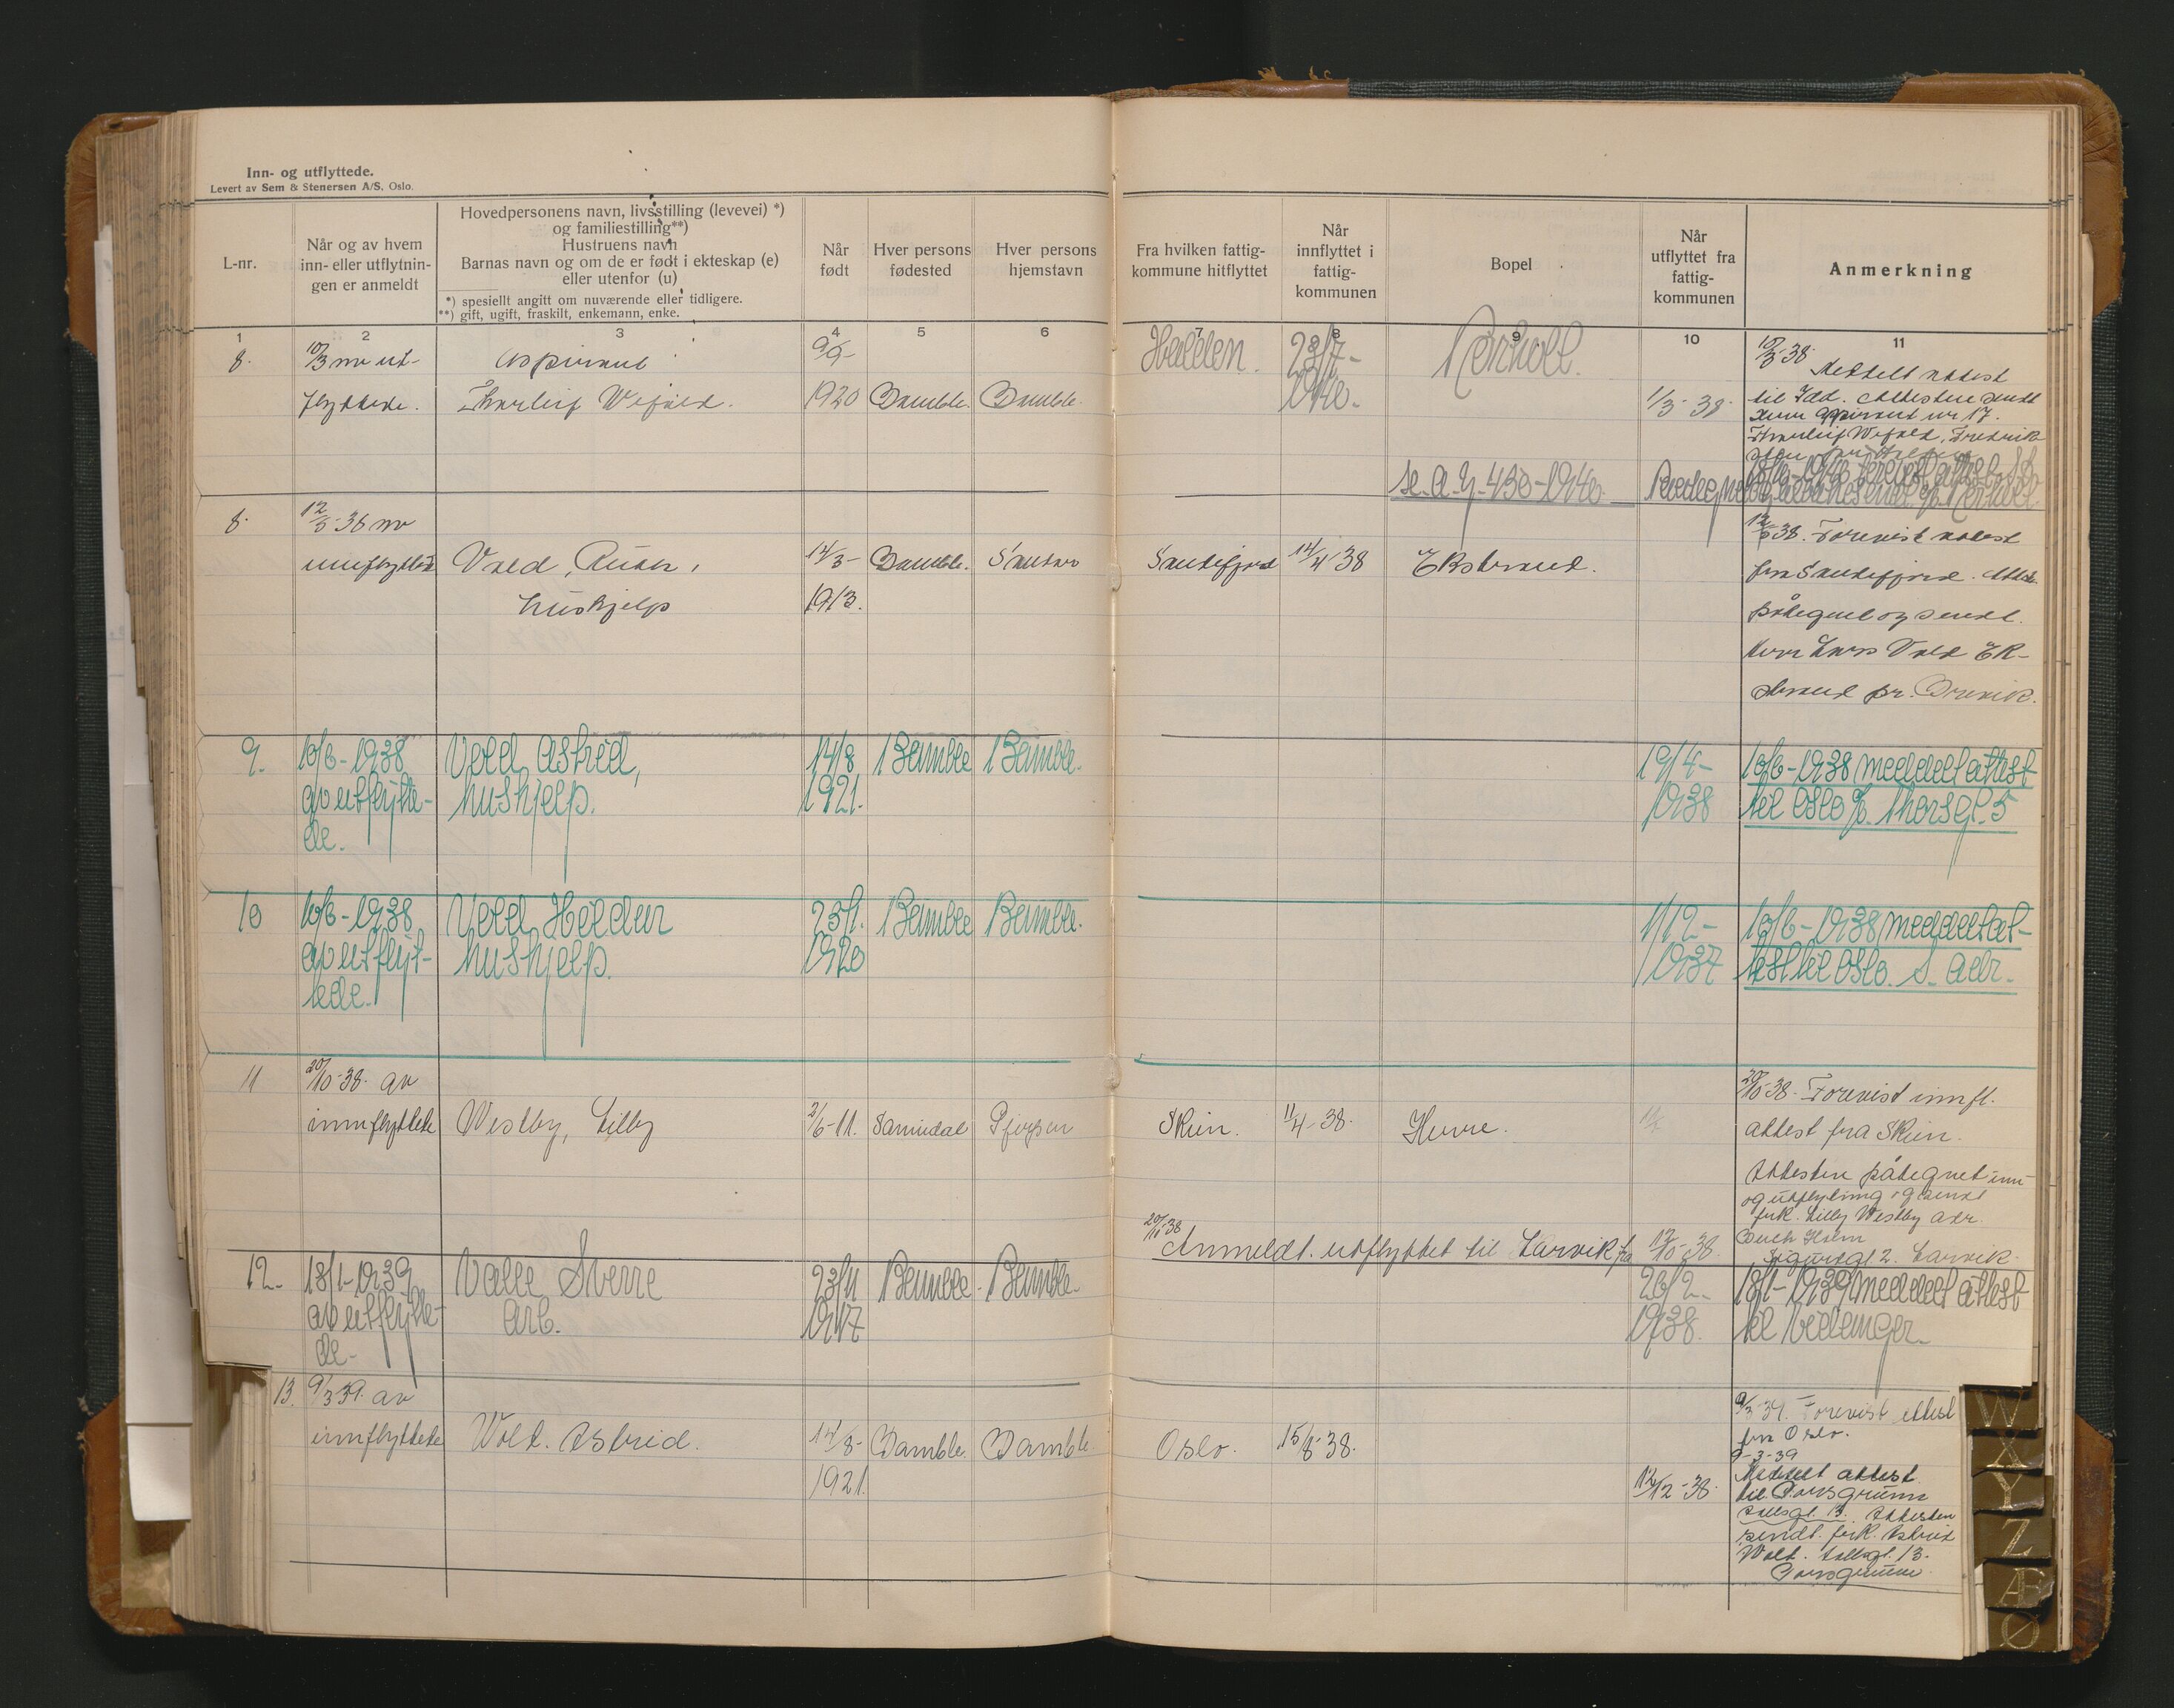 Inn- og utflyttede.
Levert av Sem & Stenersen A/S. Oslo.
L-nr.
Når og av hvem
inn- eller utflytnin-
gen er anmeldt
Hovedpersonens navn, livsstilling (levevei) *)
og familiestilling**)
Hustruens navn
Barnas navn og om de er født i ekteskap (e)
eller utenfor (u)
*) spesielt angitt om nuværende eller tidligere.
**) gift, ugift, fraskilt, enkemann, enke.
Når
født
Hver persons
fødested
Hver persons
hjemstavn
Fra hvilken fattig-
kommune hitflyttet
Når
innflyttet i
fattig-
kommunen
Bopel
Når
utflyttet fra
fattig-
kommunen
Anmerkning
1 2 3 4 5 6 7 8 9 10 11
8. 10/3 av ut- Aspirant 9/9- 23/7- 10/3-38.
Meddelt attest
flyttede. 1920 Bamble. Bamble. 1940. 1/3-38. til Idd. Attesten sendt
aspirant nr 17.
se. A. J. 430-1940.
8. 12/5-38 av 12/5-38. Forevist attest
innflyttede Vald, 14/3- Bamble. Sandar Sandefjord 14/4 38 Ekstrand. fra Sandefjord.
hushjelp 1913. påtegnet og sendt
herr Lars Vald Ek-
strand pr. Brevik.
9. 10/6-1938 Vold Astrid, 14/8 Bamble Bamble. 19/4- 10/6-1938 meddelt attest
av utflytte- hushjelp. 1921. 1938 til Oslo Thorsgt. 5
de.
10 10/6-1938 Vold 23/1. Bamble Bamble. 1/12- 10/6-1938 meddelt at-
av utflyt- hushjelp. 1920 1937 test til Oslo. S. adr.
tede.
11 20/10-38. av 20/10-38. Forevist innfl.
innflyttede Westby, Lilly 2/6-11. Sannidal Skien. 11/4-38. Herre. attest fra Skien.
Attesten påtegnet inn-
og utflytning og sendt
frk. Lilly Westby adr.
Anmeldt utflyttet til Larvik fra 12/10-38.
Sigurdsgt 2. Larvik.
12. 18/1-1939 Valle Sverre 23/11 Bamble. Bamble. 20/2- 18/1-1939 meddelt attest
av utflytte- Arb. 1917 1938. til
de-
13. 9/3 39. av 9/3-39. Forevist attest
innflyttede Wold. Astrid. 14/8- Bamble. Bamble Oslo. 15/8-38. fra Oslo.
9-3-39
1921. 12/12-38. Meddelt attest
til Porsgrunn
Attesten
sendt frk. Astrid
Wold. 13.
Porsgrunn
W
X
Y
Z
Æ
Ø